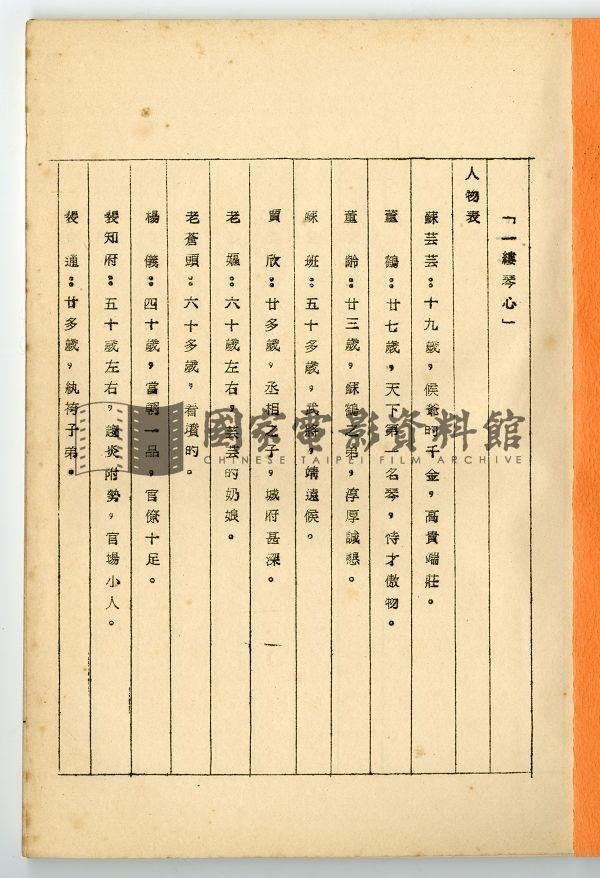 「一縷琴心」
人物表
蘇芸芸：十九歲，侯爺的千金，高貴端莊。
董　鶴：廿七歲，天下第一名琴，恃才傲物。
董　齡：廿三歲，蘇鶴之弟，淳厚誠懇。
蘇　班：五十多歲，武將，靖遠侯。
賈　欣：廿多歲，丞相之子，城府甚深。
老　嫗：六十歲左右，芸芸的奶娘。
老蒼頭：六十多歲，看墳的。
楊　儀：四十歲，當朝一品，官僚十足。
裴知府：五十歲左右，趨炎附勢，官場小人。
裴　通：廿多歲，紈袴子弟。
一
國家電影資料館
CHINESE TAIPEI FILM ARCHIVE